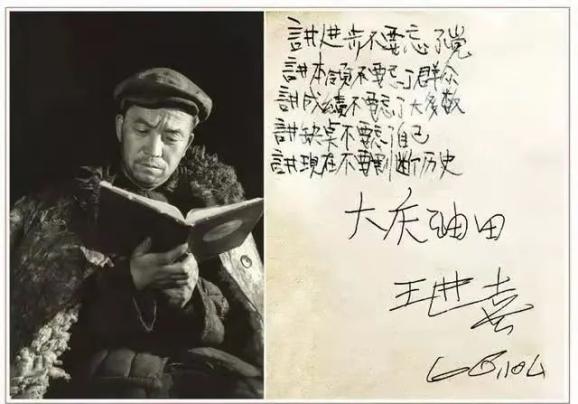 讲进步不要忘了党
讲本领不要忘了群众
讲成绩不要忘了大多数
讲缺点不要忘了自己
讲现在不要割断历史
大庆油田
王进喜
66.10.4